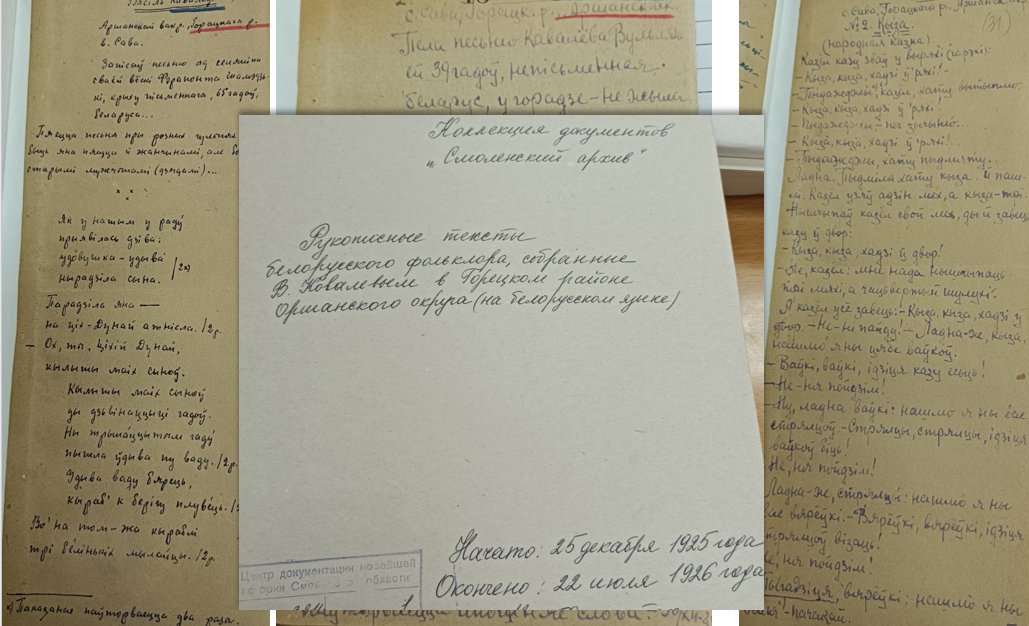 Васіль Кавалёў
Аршанскай акр., Горацкага р.
в. Сава.
Запісаў песьню ад селяніна
сваёй вёскі
крыху пісьменнага, 65 гадоў,
беларуса...
Пяецца песьня при розных
быць яна пяецца й жанчынамі, але
старымі мужчынамі (дзядамі)...
Як у нашым у раду
прыявілась дзіва:
удовушка-удыва
нырадзіла сына. /2 р.
Парадзіла яна —
на ціх-Дунай атнісла. /2 р.
— Ох, ты, ціхій Дунай,
кылышы маіх сыноў.
Кылышы маіх сыноў
ды дзьвінаццыці гадоў.
Ны трынаццытом гаду
пышла ўдыва пу ваду. /2 р.
Удыва ваду бярець,
кыраб' к берігу плувець.
Во' на том-жа кыраблі
трі беліньких мылайцы. /2 р.
Паказаная паўтораецца два раза.
с. Сава, Горацк. р., Аршанск. ак.
Пела песьню Кавалёва Вульян
ей 39 гадоў, непісьменная
беларус, у горадзе - не жыла
Коллекция документов
„Смоленский архив"
Рукописные тексты
белорусского фольклора, собранные
В. Ковалевым в Горецком районе
Оршанского округа (на белорусском языке)
Начато: 25 декабря 1925 года
Окончено: 22 июля 1926 года
Центр документации новейшей
истории Смоленской области
с. Сава, Горацкага р. Аршанск. акр.
(31)
№ 2. Кыза.
(народная казка)
Казёл казу зваў у выряхі (гарэхі):
- Кыза, кыза, хадзі ў 'рэхі!
- Пыдажджы, казёл, хату вытыплю.
- Кыза, кыза, хадзі ў 'рэхі!
- Пыдажджы - печ зычыню...
- Кыза, кыза, хадзі ў 'рэхі!
- Пыдажджы, хату пыдмяту...
Ладна. Пыдміла хату кыза. И паш-
лі. Казёл узяў адзін мех, а кыза - тоі.
Нышчыпаў казёл свой мех, ды й завець
казу ў двор:
- Кыза, кыза, хадзі ў двор!
- Не, казёл: мне нада нышчыпаць
тоі мяхі, а чацьвертый
А казёл усё завець: - Кыза, кыза, хадзі у
двор. - Не-ни пайду! - Ладна-же, кыза,
нашлю я ны цябе ваўкоў.
- Ваўкі, ваўкі, ідзіця казу есьць!
- Не-ня пойдзім!
- Ну, ладна ваўкі: нашлю я ны вас
стряльцоў - Стряльцы, стряльцы, ідзіця
ваўкоў біць!
Не, ня пойдзім!
Ладна-же, стряльцы: нашлю я ны
вас вярёўкі. - Вярёўкі, вярёўкі, ідзіця
стряльцоў візаць!
Не, ня пойдзім!
вярёўкі: нашлю я ны